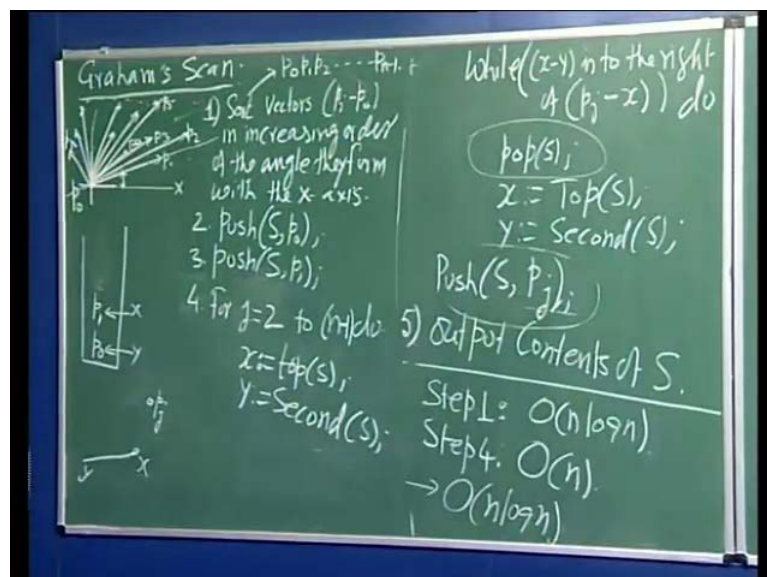 Graham's Scan.
P0P1P2 ----- Pn-1
1) Sort vectors (Pj - P0)
in increasing order
of the angle they form
with the x-axis.
2. Push(S, P0);
3. Push(S, P1);
4. For j=2 to (n-1) do
x:=top(S);
y:=Second(S);
While ((x-y) is to the right
of (Pj - x)) do
pop(S);
x:= Top(S);
y:= Second(S);
Push(S, Pj);
5) Output Contents of S.
Step 1: O(n log n)
Step 4: O(n)
→ O(n log n)
P2
P3
P1
P0
X
P1 ← X
P0 ← Y
Pj
Y X